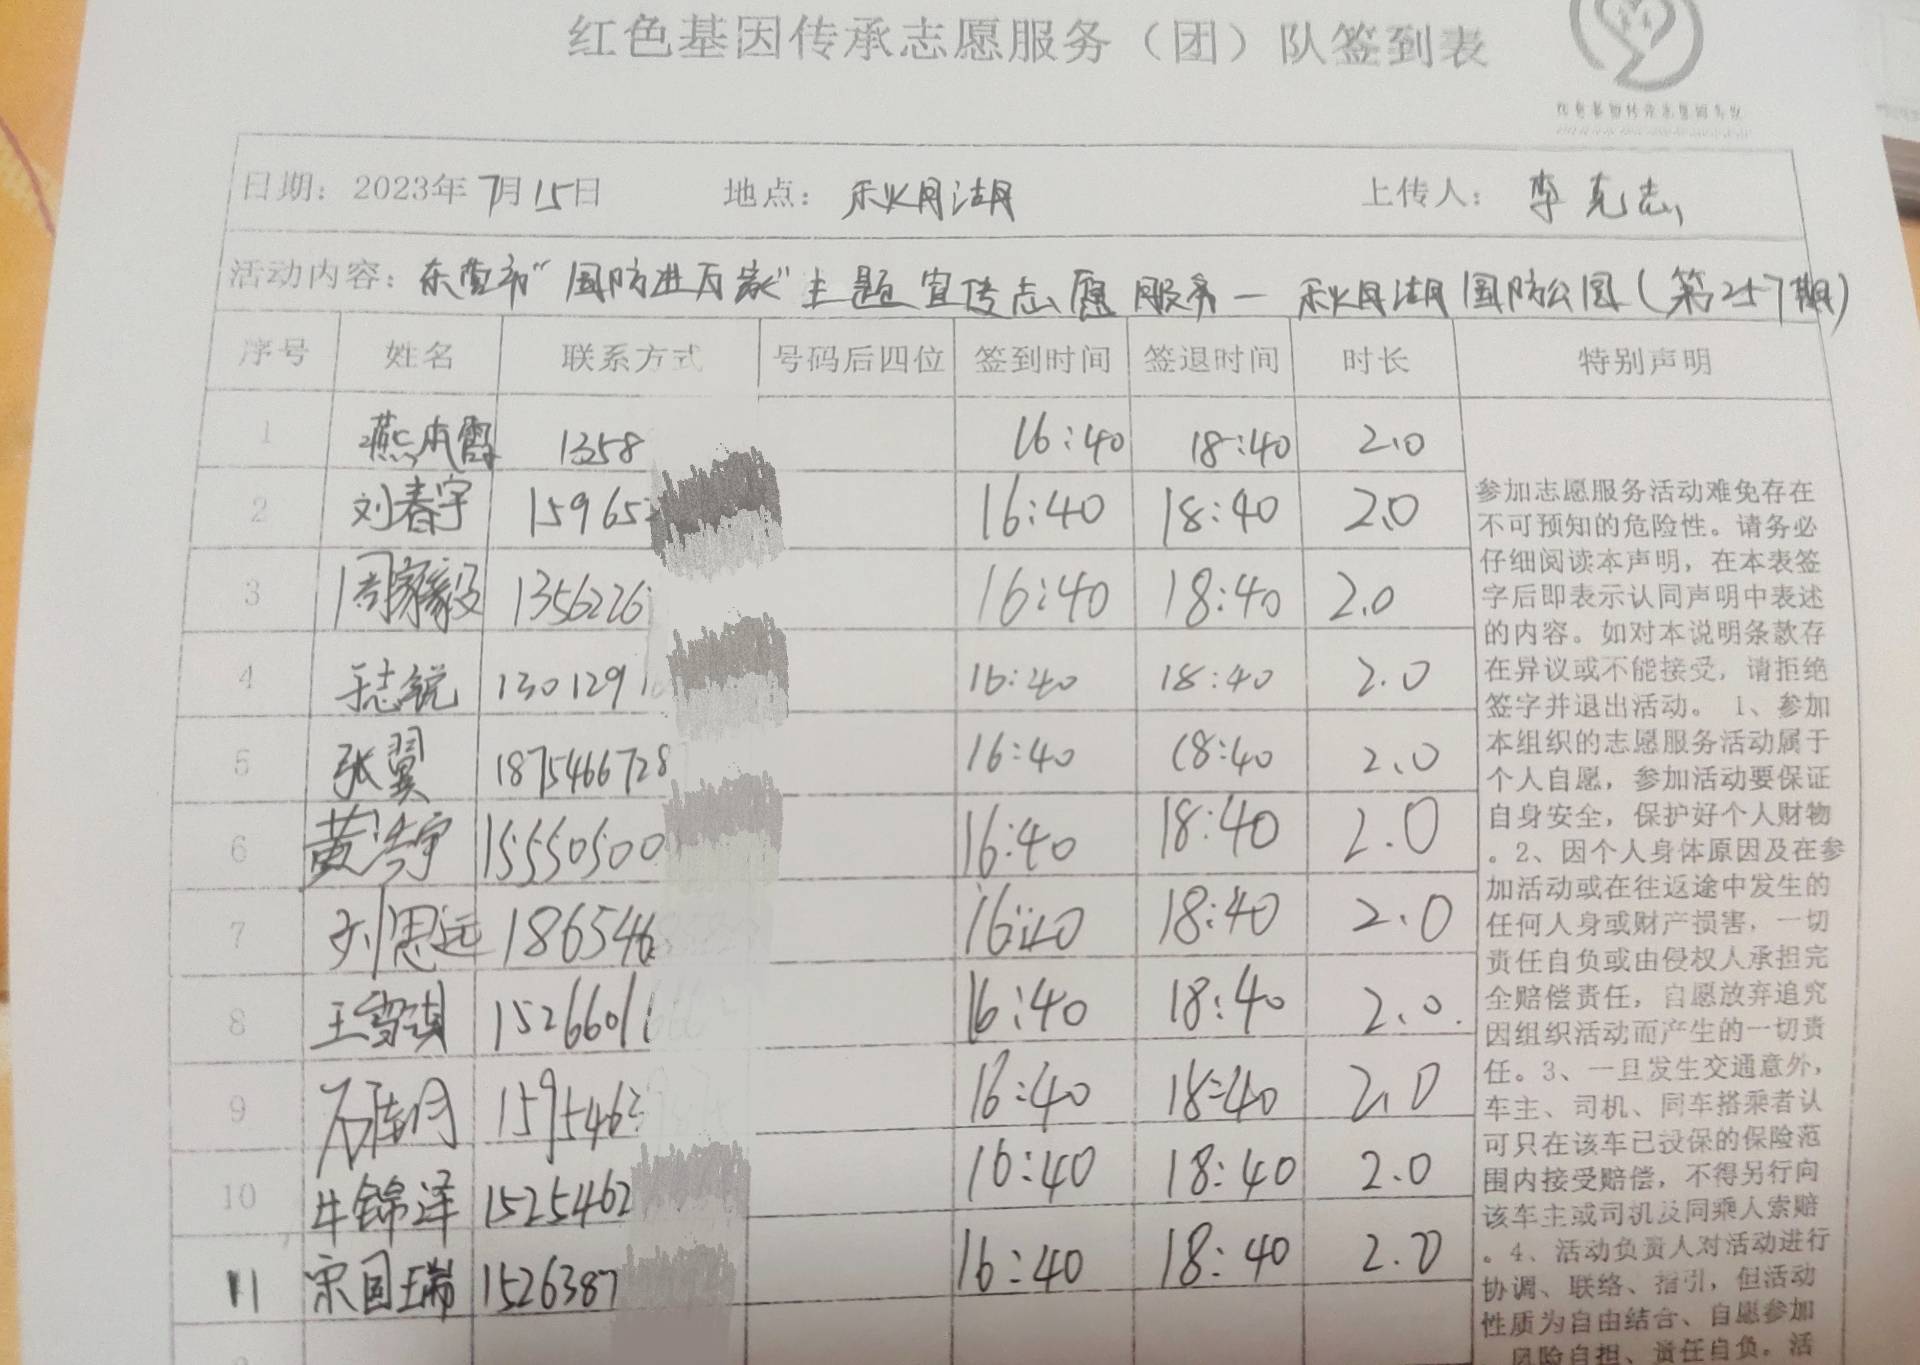 红色基因传承志愿服务（团）队签到表
日期：2023年7月15日 地点：秋月湖 上传人：李克志
活动内容：东营市“国防进万家”主题宣传志愿服务— 秋月湖国防公园（第257期）
序号 姓名 联系方式 号码后四位 签到时间 签退时间 时长 特别声明
1 燕 霞 1358 16:40 18:40 2.0
2 刘春宇 15965 16:40 18:40 2.0
3 周家毅 1356226 16:40 18:40 2.0
4 于志锐 1301291 16:40 18:40 2.0
5 张翼 1875466728 16:40 18:40 2.0
6 黄浩宇 15550500 16:40 18:40 2.0
7 刘思远 186546 16:40 18:40 2.0
8 王雪琪 15266011 16:40 18:40 2.0.
9 1595463 16:40 18:40 2.0
10 牛锦泽 1525462 16:40 18:40 2.0
11 宋国瑞 1526387 16:40 18:40 2.0
参加志愿服务活动难免存在
不可预知的危险性。请务必
仔细阅读本声明，在本表签
字后即表示认同声明中表述
的内容。如对本说明条款存
在异议或不能接受，请拒绝
签字并退出活动。 1、参加
本组织的志愿服务活动属于
个人自愿，参加活动要保证
自身安全，保护好个人财物
。2、因个人身体原因及在参
加活动或在往返途中发生的
任何人身或财产损害，一切
责任自负或由侵权人承担完
全赔偿责任，自愿放弃追究
因组织活动而产生的一切责
任。3、一旦发生交通意外，
车主、司机、同车搭乘者认
可只在该车已投保的保险范
围内接受赔偿，不得另行向
该车主或司机及同乘人索赔
。4、活动负责人对活动进行
协调、联络、指引，但活动
性质为自由结合、自愿参加
、风险自担、责任自负。活